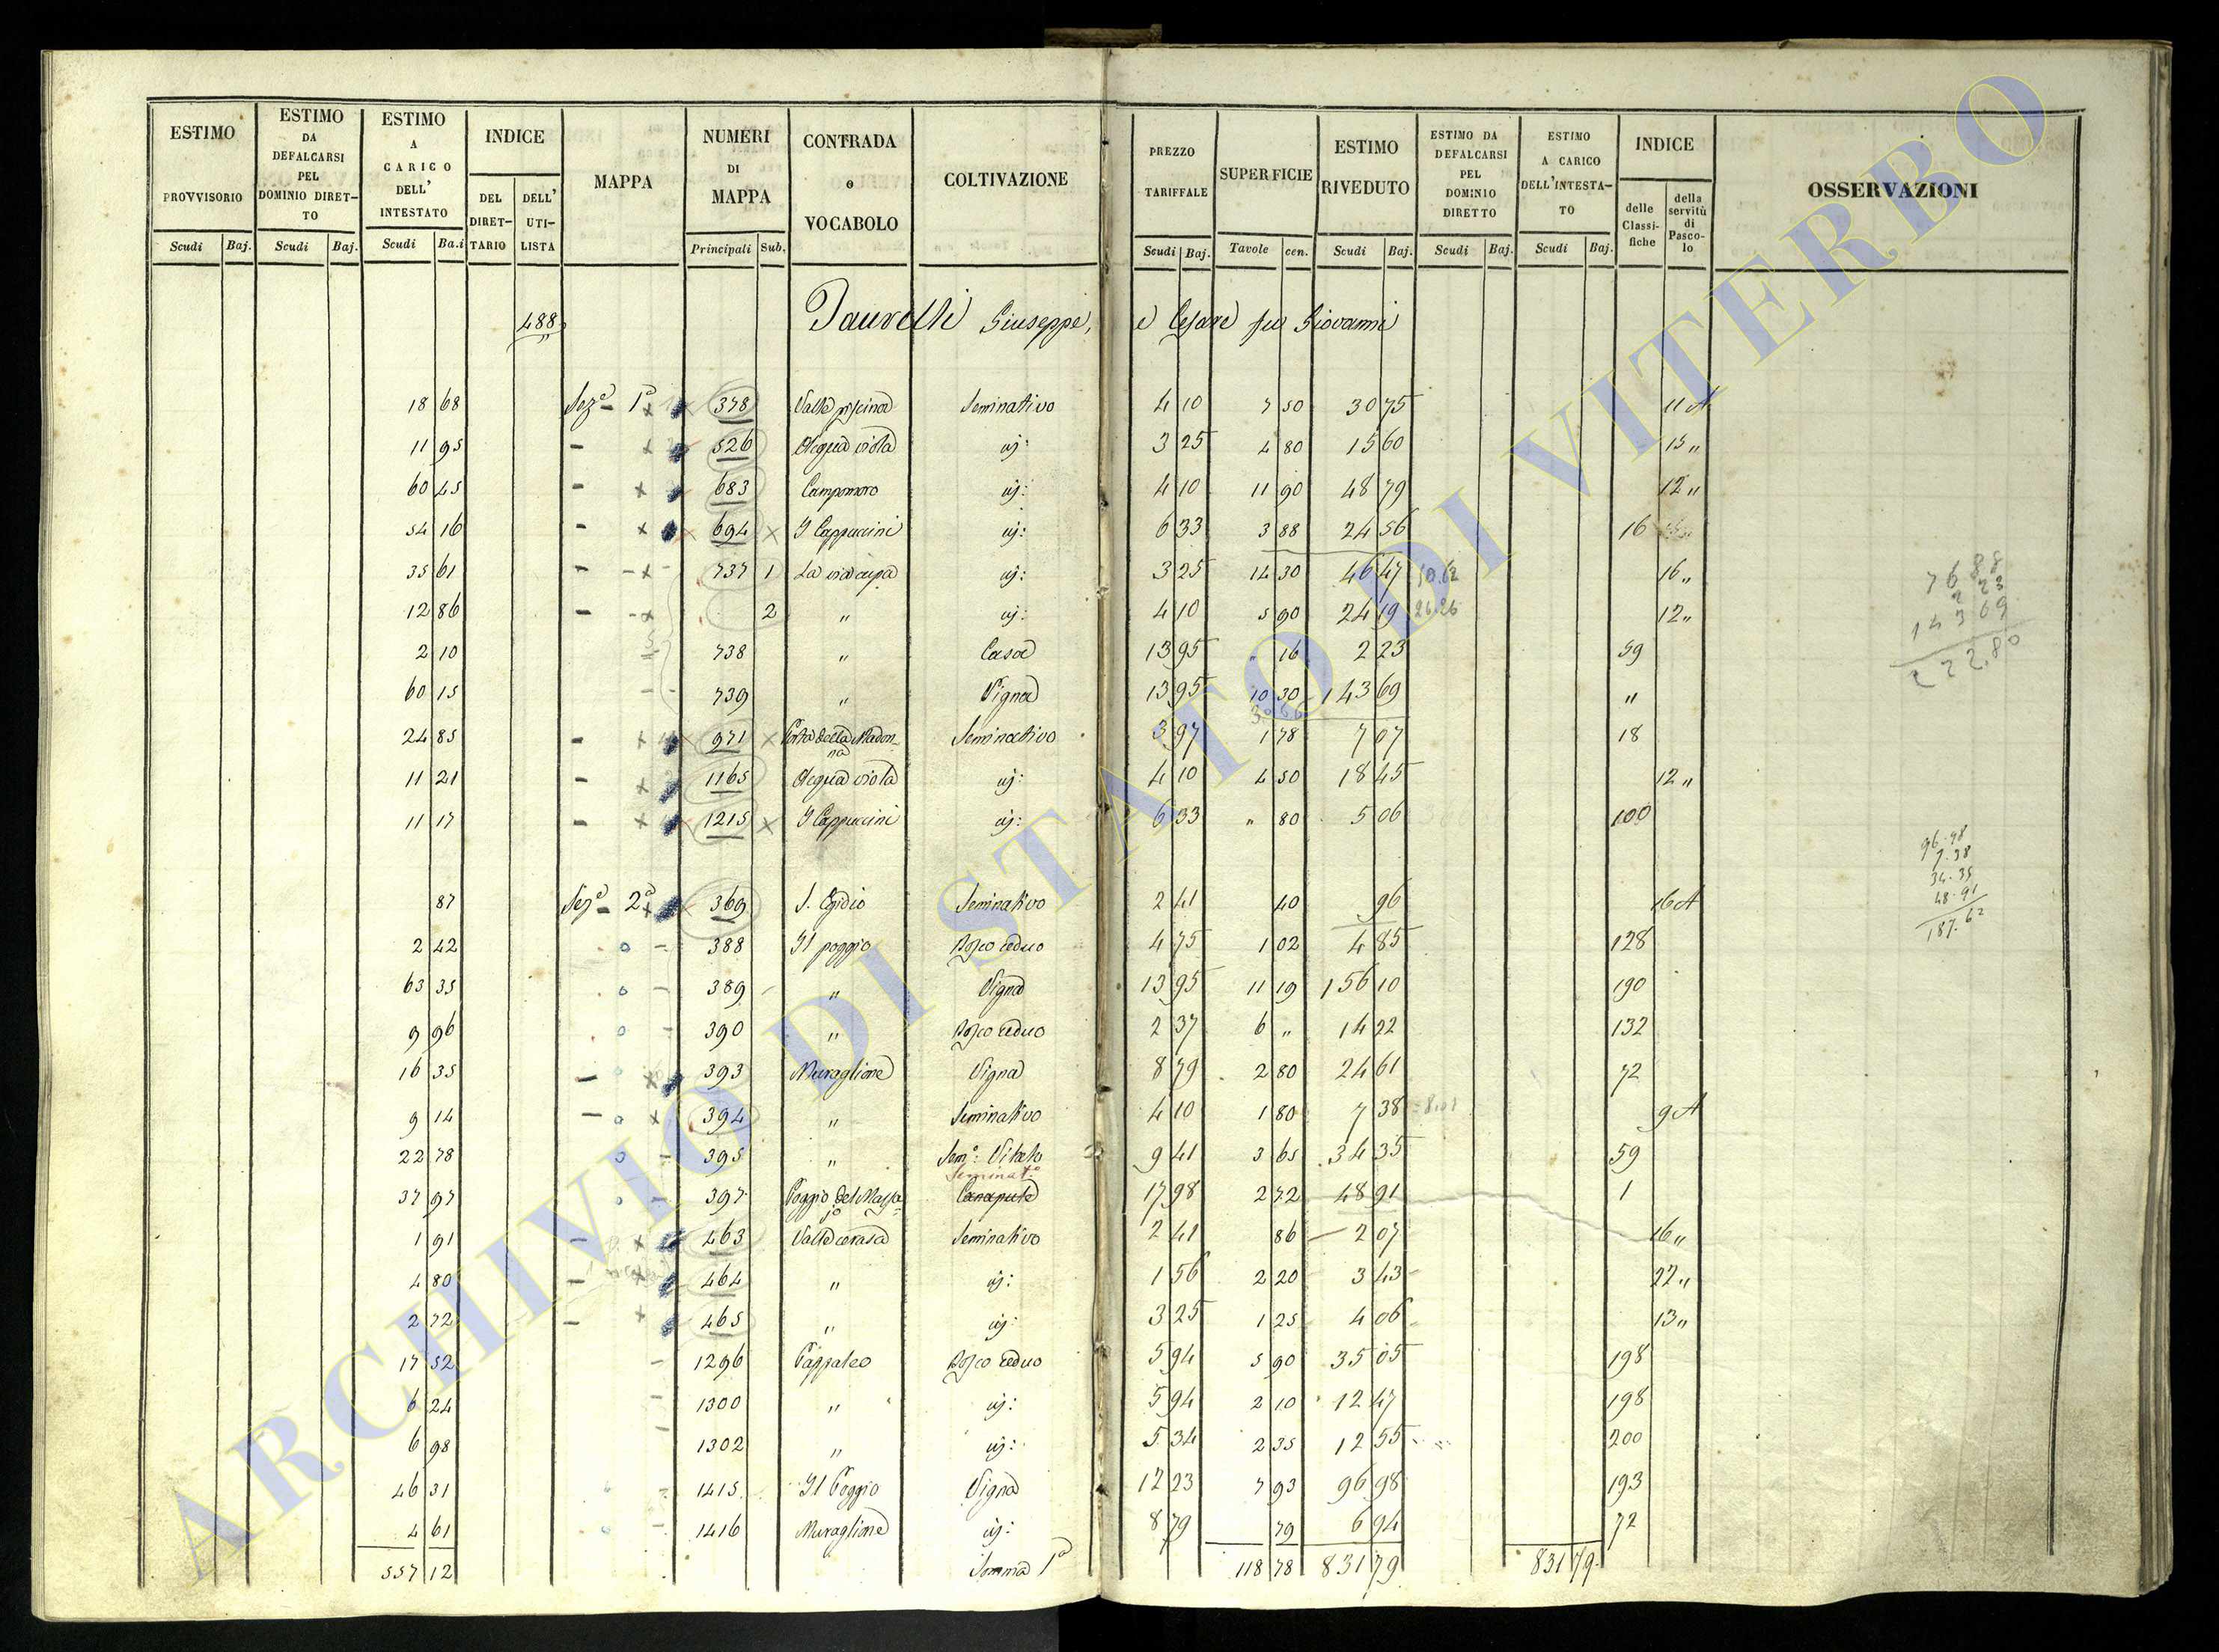 ESTIMO PROVVISORIO Scudi Baj. | ESTIMO DA DEFALCARSI PEL DOMINIO DIRET-TO Scudi Baj. | ESTIMO A CARICO DELL' INTESTATO Scudi Ba.i | INDICE DEL DIRET-TARIO DELL' UTI-LISTA | MAPPA | NUMERI DI MAPPA Principali Sub. | CONTRADA o VOCABOLO | COLTIVAZIONE | PREZZO TARIFFALE Scudi Baj. | SUPERFICIE Tavole cen. | ESTIMO RIVEDUTO Scudi Baj. | ESTIMO DA DEFALCARSI PEL DOMINIO DIRETTO Scudi Baj. | ESTIMO A CARICO DELL'INTESTA-TO Scudi Baj. | INDICE delle Classi-fiche della servitù di Pasco-lo | OSSERVAZIONI
488 Taurelli Giuseppe, e Cesare fu Giovanni
18 68 Sez.e 1a 378 Valle piscina Seminativo 4 10 7 50 30 75 11 A
11 95 - 526 Acqua viola id: 3 25 4 80 15 60 15 "
60 45 - 683 Campomoro id: 4 10 11 90 48 79 12 "
54 16 - 694 I Cappuccini id: 6 33 3 88 24 56 16
35 61 - 737 1 La via cupa id: 3 25 14 30 46 47 50.62 16 "
12 86 - 2 " id: 4 10 5 90 24 19 26.26 12 "
2 10 738 " Casa 13 95 " 16 2 23 59
60 15 739 " Vigna 13 95 10 30 143 69 "
24 85 - 971 Porta della Madonna Seminativo 3 97 1 78 7 07 18
11 21 - 1165 Acqua viola id: 4 10 4 50 18 45 12 "
11 17 - 1215 I Cappuccini id: 6 33 " 80 5 06 100
87 Sez.e 2a 369 S. Egidio Seminativo 2 41 40 96 16 A
2 42 388 Il poggio Bosco ceduo 4 75 1 02 4 85 128
63 35 389 " Vigna 13 95 11 19 156 10 190
9 96 390 " Bosco ceduo 2 37 6 " 14 22 132
16 35 - 393 Muraglione Vigna 8 79 2 80 24 61 72
9 14 - 394 " Seminativo 4 10 1 80 7 38 9 A
22 78 395 " Sem.o Vitato 9 41 3 65 34 35 59
Seminat.o
37 97 397 Poggio del Massajo Canapule 17 98 2 72 48 91 1
1 91 - 463 Valle cerasa Seminativo 2 41 86 2 07 16 "
4 80 - 464 " id: 1 56 2 20 3 43 22 "
2 72 - 465 " id: 3 25 1 25 4 06 13 "
17 52 1296 Pappaleo Bosco ceduo 5 94 5 90 35 05 198
6 24 1300 " id: 5 94 2 10 12 47 198
6 98 1302 " id: 5 34 2 35 12 55 200
46 31 1415 Il Poggio Vigna 12 23 7 93 96 98 193
4 61 1416 Muraglione id: 8 79 79 6 94 72
557 12 Somma 1a 118 78 831 79 831 79
76 88
2 23
143 69
222.80
96.98
7.38
34.35
48.91
187.62
ARCHIVIO DI STATO DI VITERBO